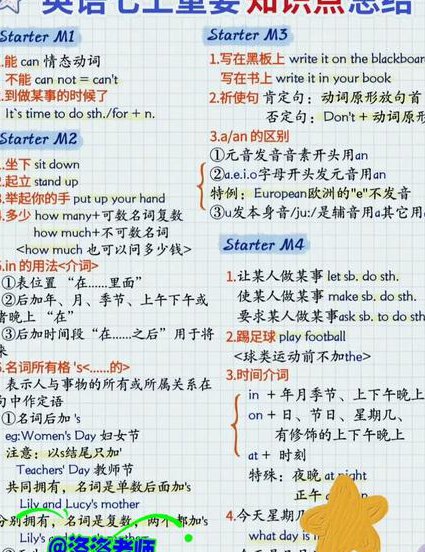 英语七上重要知识点总结
Starter M1
.能 can 情态动词
不能 can not = can't
.到做某事的时候了
It`s time to do sth./for + n.
Starter M2
.坐下 sit down
.起立 stand up
.举起你的手 put up your hand
.多少 how many+可数名词复数
how much+不可数名词
<how much 也可以问多少钱>
.in 的用法<介词>
①表位置 “在......里面”
②后加年、月、季节、上午下午或
者晚上 “在”
③后加时间段 “在......之后” 用于将
来
.名词所有格 's<......的>
表示人与事物的所有或所属关系在
句中作定语
①名词后加 's
eg:Women's Day 妇女节
注意：以s结尾只加'
Teachers' Day 教师节
共同拥有，名词是单数后面加's
Lily and Lucy's mother
分别拥有，名词是复数，两个都加's
Lily's
@洛洛老师
Starter M3
1.写在黑板上 write it on the blackboar
写在书上 write it in your book
2.祈使句 肯定句：动词原形放句首
否定句：Don't + 动词原形
3.a/an 的区别
①元音发音音素开头用an
②a.e.i.o字母开头发元音用an
特例：European欧洲的"e"不发音
③u发本身音/ju:/是辅音用a其它用
Starter M4
1.让某人做某事 let sb. do sth.
使某人做某事 make sb. do sth.
要求某人做某事ask sb. to do sth
2.踢足球 play football
<球类运动前不加the>
3.时间介词
in + 年月季节、上下午晚上
on + 日、节日、星期几、
有修饰的上下午晚上
at + 时刻
特殊：夜晚 at night
正午
4.今天星期几
what day is